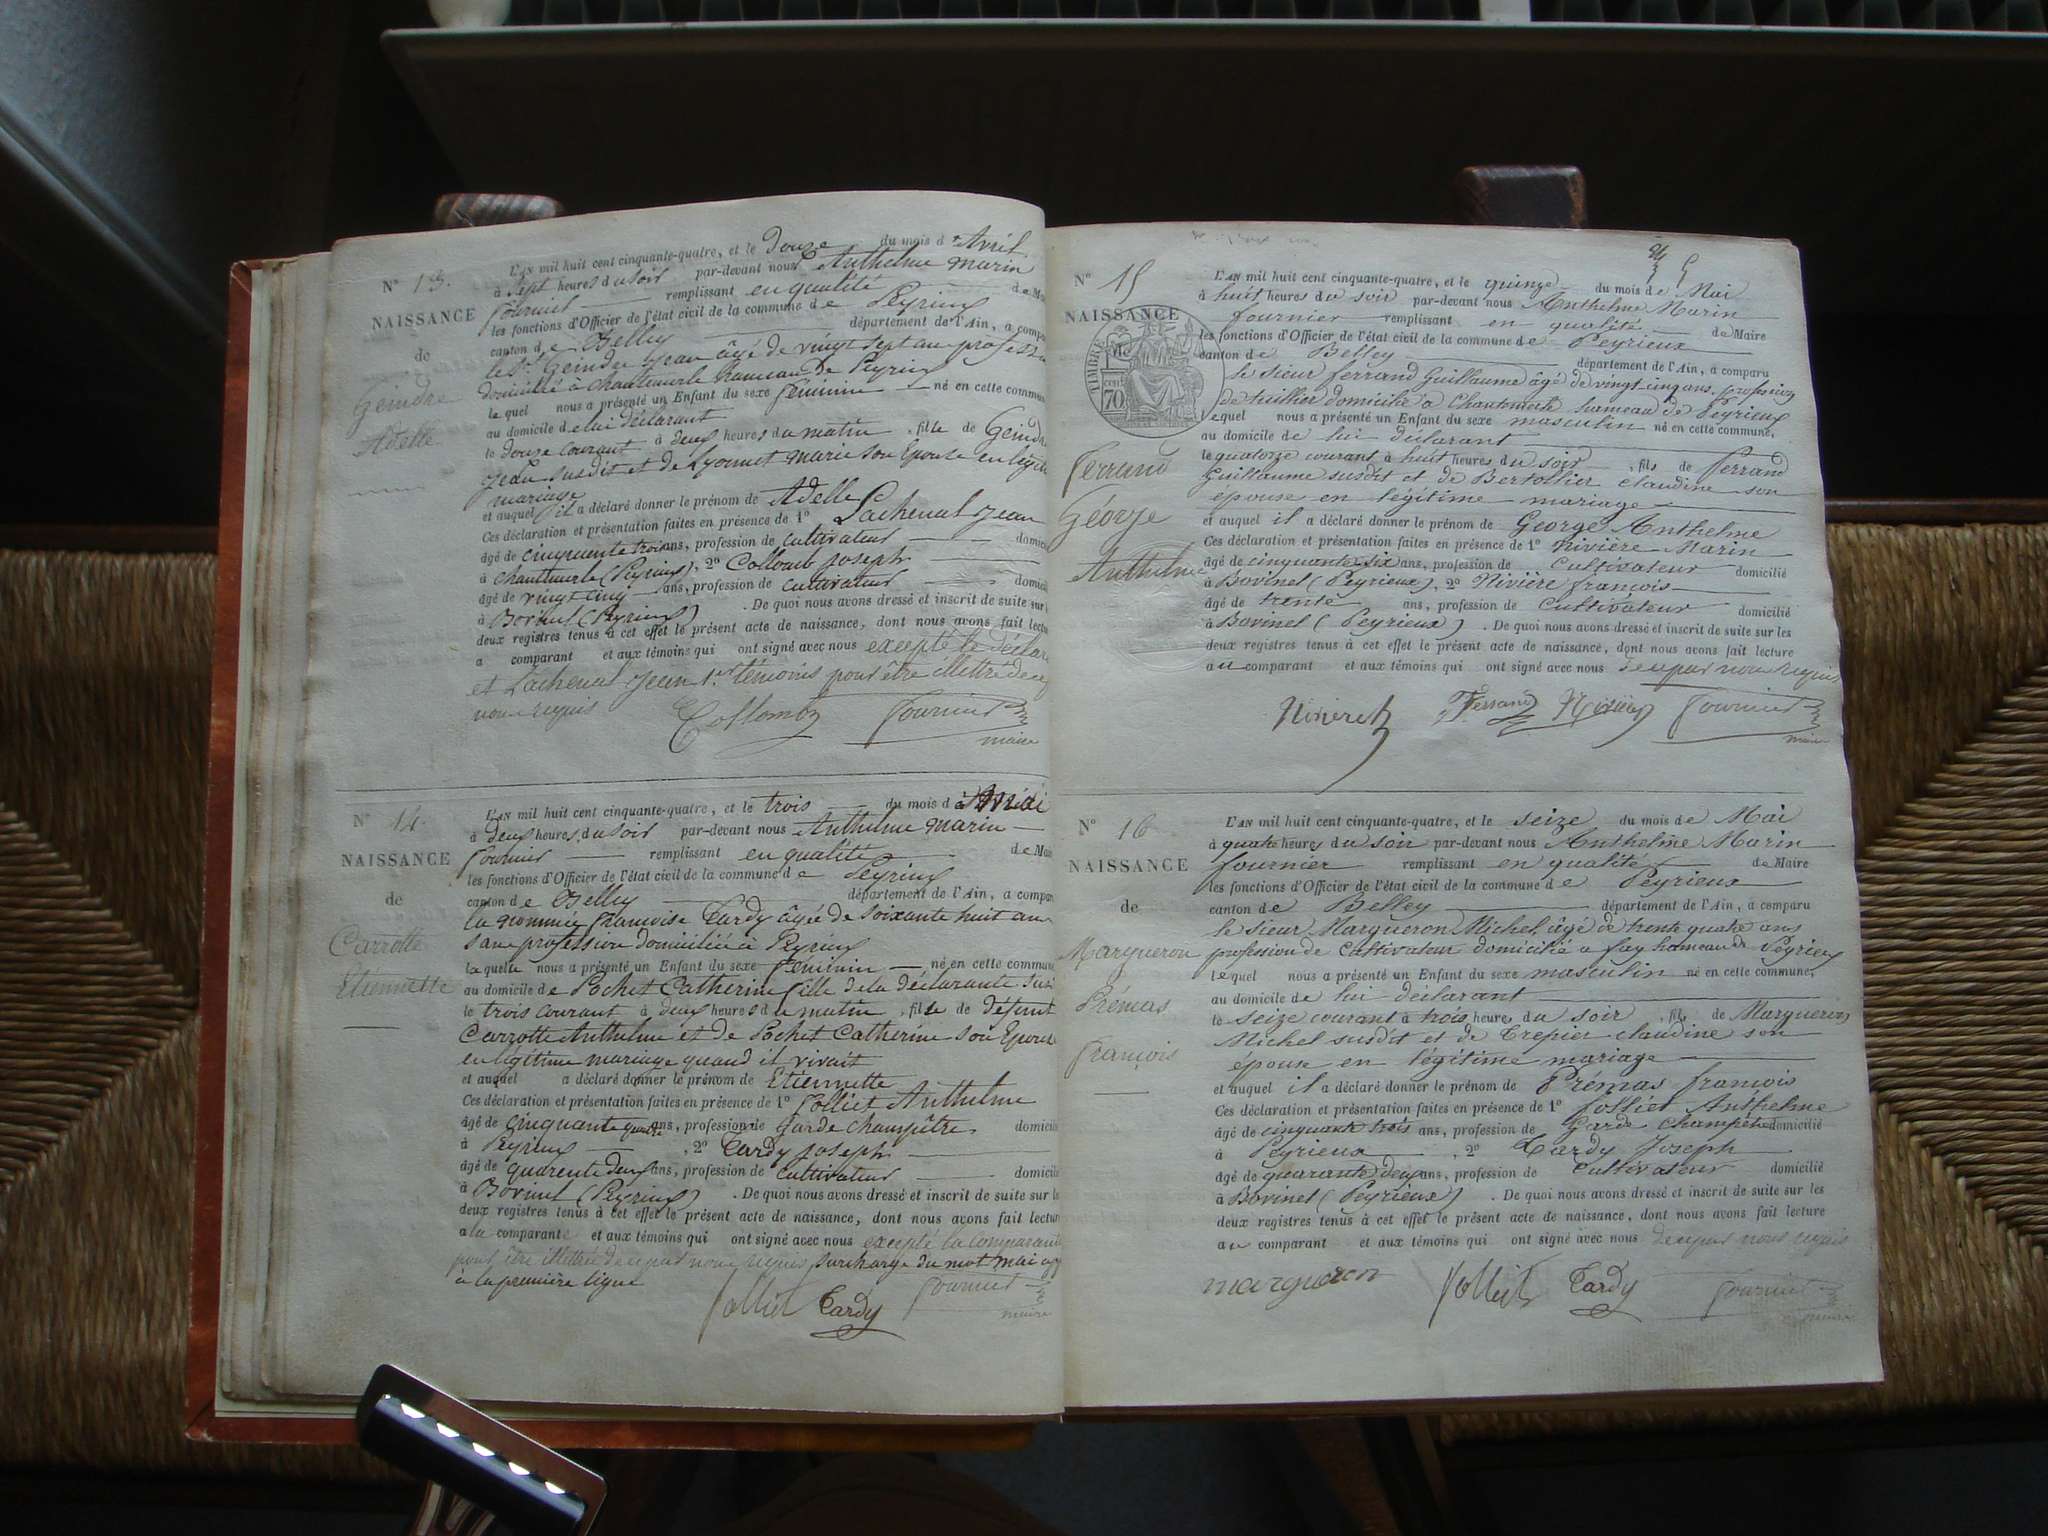 N° 13.
NAISSANCE
de
Geindre
Adelle
L'AN mil huit cent cinquante-quatre, et le douze du mois d'Avril
à sept heures du soir par-devant nous Anthelme Marin
fournier remplissant en qualité de Mai
les fonctions d'Officier de l'état civil de la commune de Peyrieux
canton de Belley département de l'Ain, a compa
le Sr Geindre Jean âgé de vingt sept ans profess
domicilié à Chantemerle hameau de Peyrieux
le quel nous a présenté un Enfant du sexe féminin né en cette commun
au domicile de lui déclarant
le douze courant à deux heures du matin, fille de Geindre
Jean susdit et de Lyonnet marie son Epouse en légit
mariage
et auquel il a déclaré donner le prénom de Adelle
Ces déclaration et présentation faites en présence de 1° Lachenal Jean
âgé de cinquante trois ans, profession de cultivateur domici
à Chantemerle (Peyrieux), 2° Collomb Joseph
âgé de vingt cinq ans, profession de cultivateur domici
à Bovinel (Peyrieux). De quoi nous avons dressé et inscrit de suite sur l
deux registres tenus à cet effet le présent acte de naissance, dont nous avons fait lectu
a comparant et aux témoins qui ont signé avec nous excepté le déclar
et Lachenal Jean 1er témoins pour être illettré de ce
nous requis
Collomb fournier
maire
N° 14.
NAISSANCE
de
Carrotte
Etiennette
L'AN mil huit cent cinquante-quatre, et le trois du mois de Mai
à deux heures du soir par-devant nous Anthelme Marin
fournier remplissant en qualité de Mai
les fonctions d'Officier de l'état civil de la commune de Peyrieux
canton de Belley département de l'Ain, a compar
la nommée Françoise Tardy âgée de soixante huit ans
sans profession domiciliée à Peyrieux
laquelle nous a présenté un Enfant du sexe féminin né en cette commune
au domicile de Pochet Catherine fille de la déclarante sus
le trois courant à deux heures du matin, fille de défunt
Carrotte Anthelme et de Pochet Catherine son Epouse
en légitime mariage quand il vivait
et auquel a déclaré donner le prénom de Etiennette
Ces déclaration et présentation faites en présence de 1° Jolliet Anthelme
âgé de cinquante quatre ans, profession de garde champêtre domicili
à Peyrieux, 2° Tardy Joseph
âgé de quarente deux ans, profession de cultivateur domicili
à Bovinel (Peyrieux). De quoi nous avons dressé et inscrit de suite sur le
deux registres tenus à cet effet le présent acte de naissance, dont nous avons fait lecture
a la comparante et aux témoins qui ont signé avec nous excepté la comparante
pour être illettrée de ce par nous requis surcharge du mot mai app
à la première ligne
Jolliet Tardy fournier
maire
N° 15
NAISSANCE
TIMBRE
1 fr.
cent
70
Ferrand
George
Anthelme
L'AN mil huit cent cinquante-quatre, et le quinze du mois de Mai
à huit heures du soir par-devant nous Anthelme Marin
fournier remplissant en qualité de Maire
les fonctions d'Officier de l'état civil de la commune de Peyrieux
canton de Belley département de l'Ain, a comparu
le sieur ferrand Guillaume âgé de vingt-cinq ans, profession
de tuillier domicilié à Chantemerle hameau de Peyrieux
lequel nous a présenté un Enfant du sexe masculin né en cette commune,
au domicile de lui déclarant
le quatorze courant à huit heures du soir, fils de ferrand
Guillaume susdit et de Bertollier claudine son
épouse en légitime mariage
et auquel il a déclaré donner le prénom de George Anthelme
Ces déclaration et présentation faites en présence de 1° Nivière Marin
âgé de cinquante six ans, profession de Cultivateur domicilié
à Bovinel (Peyrieux), 2° Nivière françois
âgé de trente ans, profession de Cultivateur domicilié
à Bovinel (Peyrieux). De quoi nous avons dressé et inscrit de suite sur les
deux registres tenus à cet effet le présent acte de naissance, dont nous avons fait lecture
au comparant et aux témoins qui ont signé avec nous de ce par nous requis
Ferrand fournier
maire
N° 16
NAISSANCE
de
Margueron
Prémas
françois
L'AN mil huit cent cinquante-quatre, et le seize du mois de Mai
à quatre heures du soir par-devant nous Anthelme Marin
fournier remplissant en qualité de Maire
les fonctions d'Officier de l'état civil de la commune de Peyrieux
canton de Belley département de l'Ain, a comparu
le sieur Margueron Michel âgé de trente quatre ans
profession de cultivateur domicilié à fay hameau de Peyrieux
lequel nous a présenté un Enfant du sexe masculin né en cette commune,
au domicile de lui déclarant
le seize courant à trois heures du soir, fils de Margueron
Michel susdit et de Crepier claudine son
épouse en légitime mariage
et auquel il a déclaré donner le prénom de Prémas françois
Ces déclaration et présentation faites en présence de 1° Jolliet Anthelme
âgé de cinquante trois ans, profession de Garde Champêtre domicilié
à Peyrieux, 2° Tardy Joseph
âgé de quarante deux ans, profession de cultivateur domicilié
à Bovinel (Peyrieux). De quoi nous avons dressé et inscrit de suite sur les
deux registres tenus à cet effet le présent acte de naissance, dont nous avons fait lecture
au comparant et aux témoins qui ont signé avec nous de ce par nous requis
margueron Jolliet Tardy fournier
maire